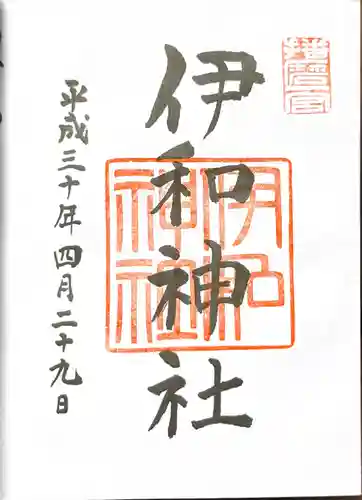 播磨宮
伊和神社
伊和
神社
平成三十年四月二十九日